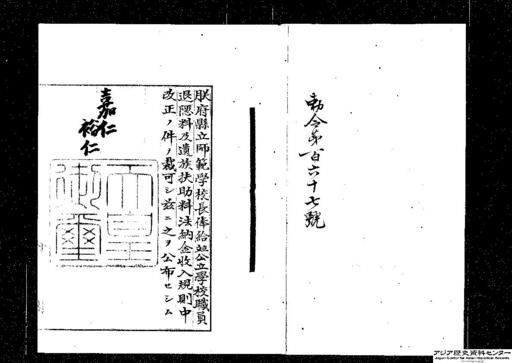 勅令第百六十七號
朕府縣立師範學校長俸給竝公立學校職員
退隱料及遺族扶助料法納金收入規則中
改正ノ件ヲ裁可シ玆ニ之ヲ公布セシム
嘉仁
裕仁
天皇
御璽
アジア歴史資料センター
Japan Center for Asian Historical Records